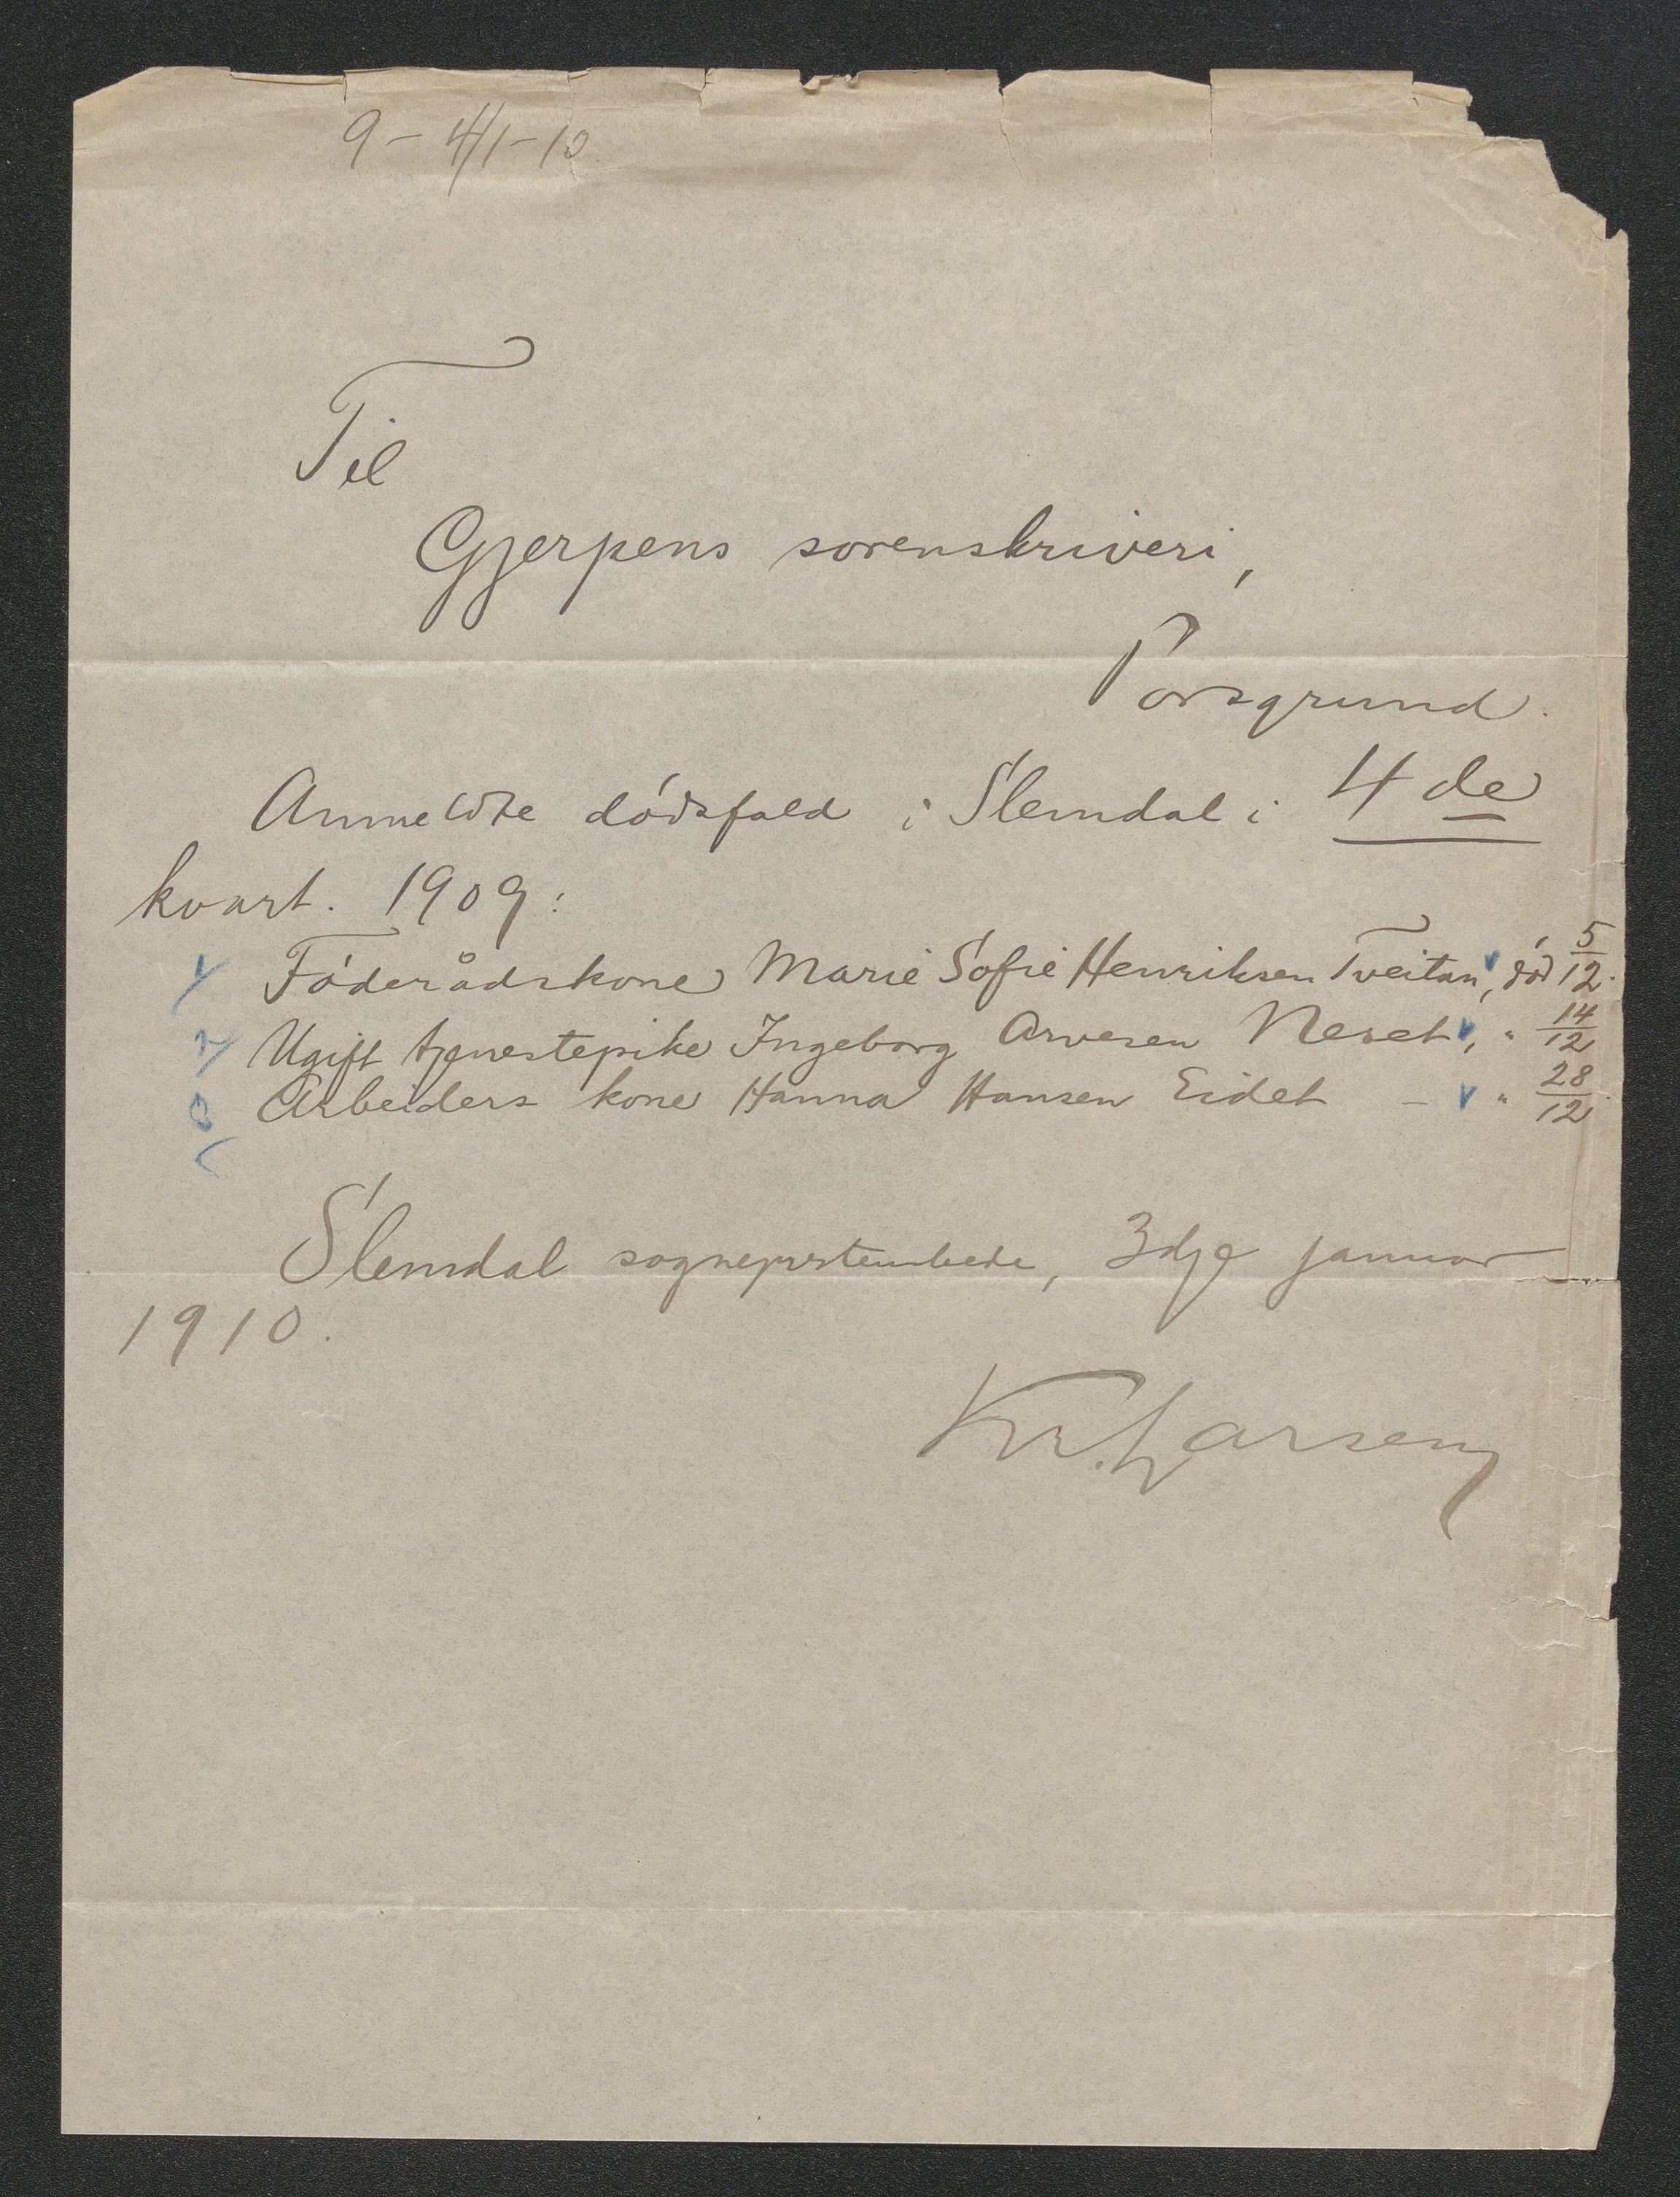 9 - 4/1 - 10
Til
Gjerpens sorenskriveri,
Porsgrund.
Anmeldte dödsfald i Slemdal i 4de
kvart. 1909:
Föderådskone Marie Sofie Henriksen Tveitan, död 5/12.
Ugift tjenestepike Ingeborg Arvesen Neset, " 14/12
Arbeiders kone Hanna Hansen Eidet - " 28/12.
Slemdal sogneprstembede, 3dje januar
1910.
Kr. Larsen